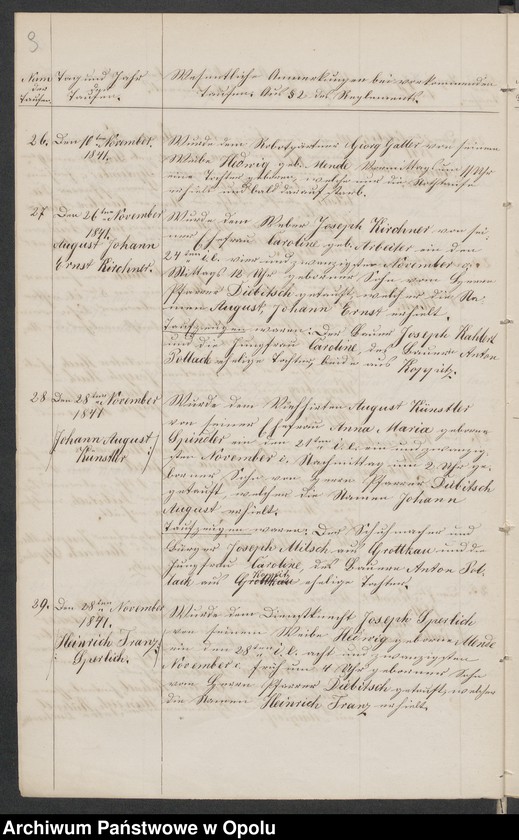 9
Num
der
Taufen.
Tag und Jahr
der
Taufen.
Wesentliche Anmerkungen bei vorkommenden
Taufen. Aus § 2 des Reglements.
26. Den 10ten November.
1841.
Wurde dem Robotgärtner Georg Galler von seinem
Weibe Hedwig geb. Mende Vormittags um 11 Uhr
eine Tochter geboren, welche nur die Nothtaufe
erhielt und bald darauf starb.
27 Den 26ten November
1841.
August Johann
Ernst Kirchner.
Wurde dem Weber Joseph Kirchner von sei-
ner Ehefrau Caroline geb. Arbeiter ein den
24ten d. l. vier und zwanzigsten November c.
Mittags 12 Uhr geborner Sohn vom Herrn
Pfarrer Diebitsch getauft, welcher die Na-
men August, Johann Ernst erhielt.
Taufzeugen waren: Der Bauer Joseph Kahlert
und die Jungfrau Caroline, des Bauers Anton
Pollack eheliche Tochter, beide aus Koppitz.
28 Den 28ten November
1841
Johann August
Künstler
Wurde dem Viehhirten August Künstler
von seiner Ehefrau Anna Maria geborne
Spindler ein den 21ten d. l. ein und zwanzig-
sten November c. Nachmittag um 2 Uhr ge-
borner Sohn vom Herrn Pfarrer Diebitsch
getauft, welcher die Namen Johann
August erhielt.
Taufzeugen waren: Der Schuhmacher und
Bürger Joseph Milsch aus Grottkau und die
Jungfrau Caroline, des Bauers Anton Pol-
Koppitz
lack aus Grottkau eheliche Tochter.
29. Den 28ten November
1841.
Heinrich Franz
Sperlich.
Wurde dem Dienstknecht Joseph Sperlich
von seinem Weibe Hedwig geborne Mende
ein den 28ten d. l. acht und zwanzigsten
November c. früh um 4 Uhr geborner Sohn
vom Herrn Pfarrer Diebitsch getauft, welcher
die Namen Heinrich Franz erhielt.
Archiwum Państwowe w Opolu